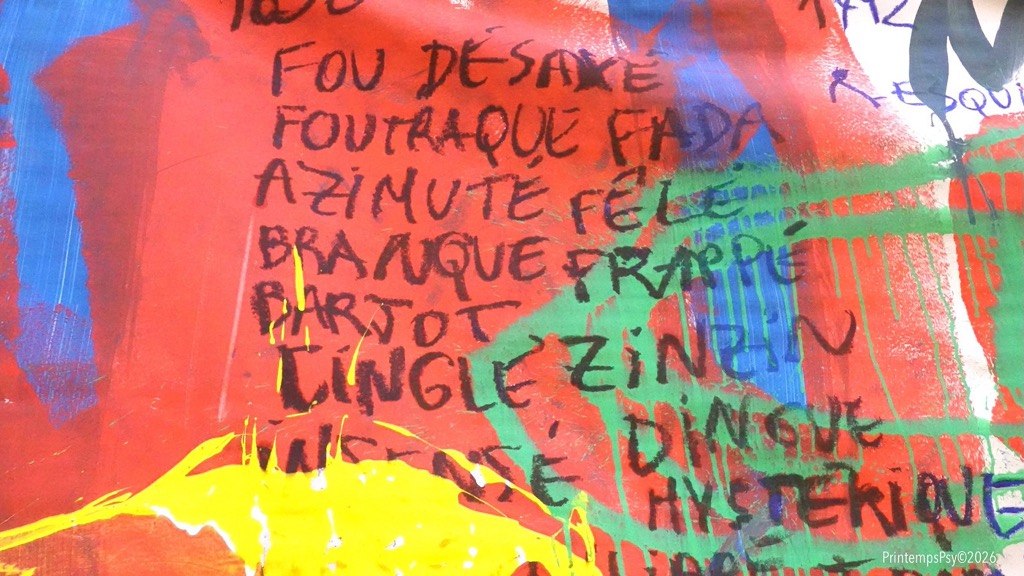 FOU DÉSAXÉ
FOUTRAQUE FADA
AZIMUTÉ FÊLÉ
BRANQUE FRAPPÉ
BARJOT
CINGLÉ ZINZIN
INSENSÉ DINGUE
HYSTERIQUE
RESQUI
PrintempsPsy©2026